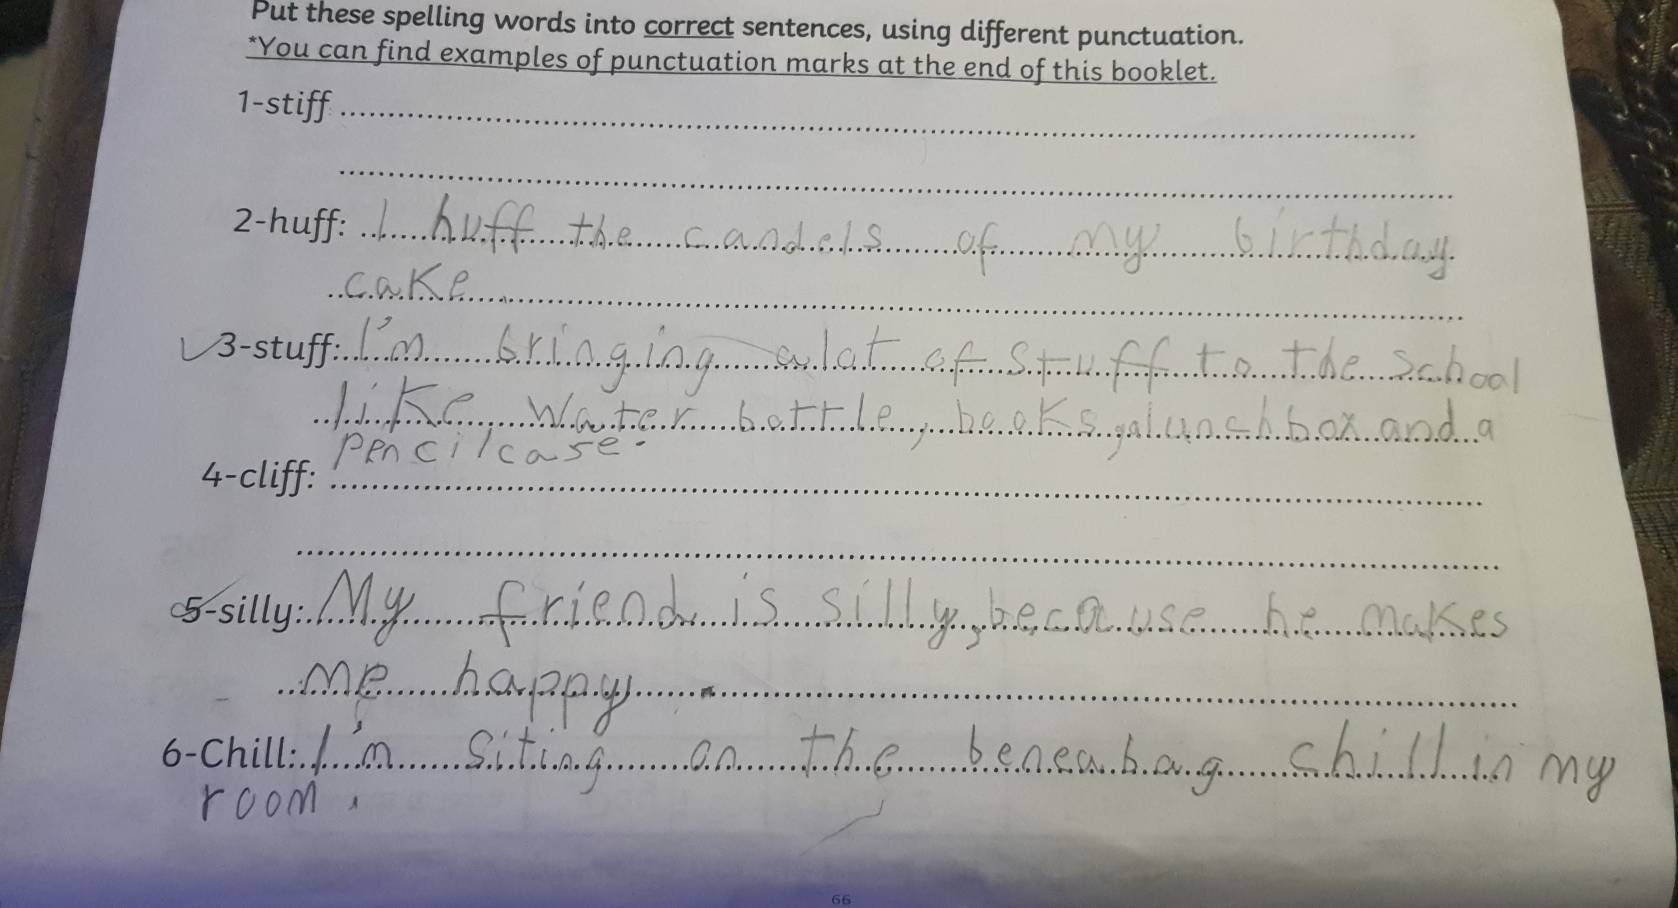 Put these spelling words into correct sentences, using different punctuation.
*You can find examples of punctuation marks at the end of this booklet.
1-stiff
2-huff: I huff the candels of my birthday
cake.
3-stuff: I'm bringing a lot of stuff to the school
like water bottle, books, a lunch box and a
pencil case.
4-cliff:
5-silly: My friend is silly, because he makes
me happy.
6-Chill: I'm siting on the beneabag chill in my
room.
66